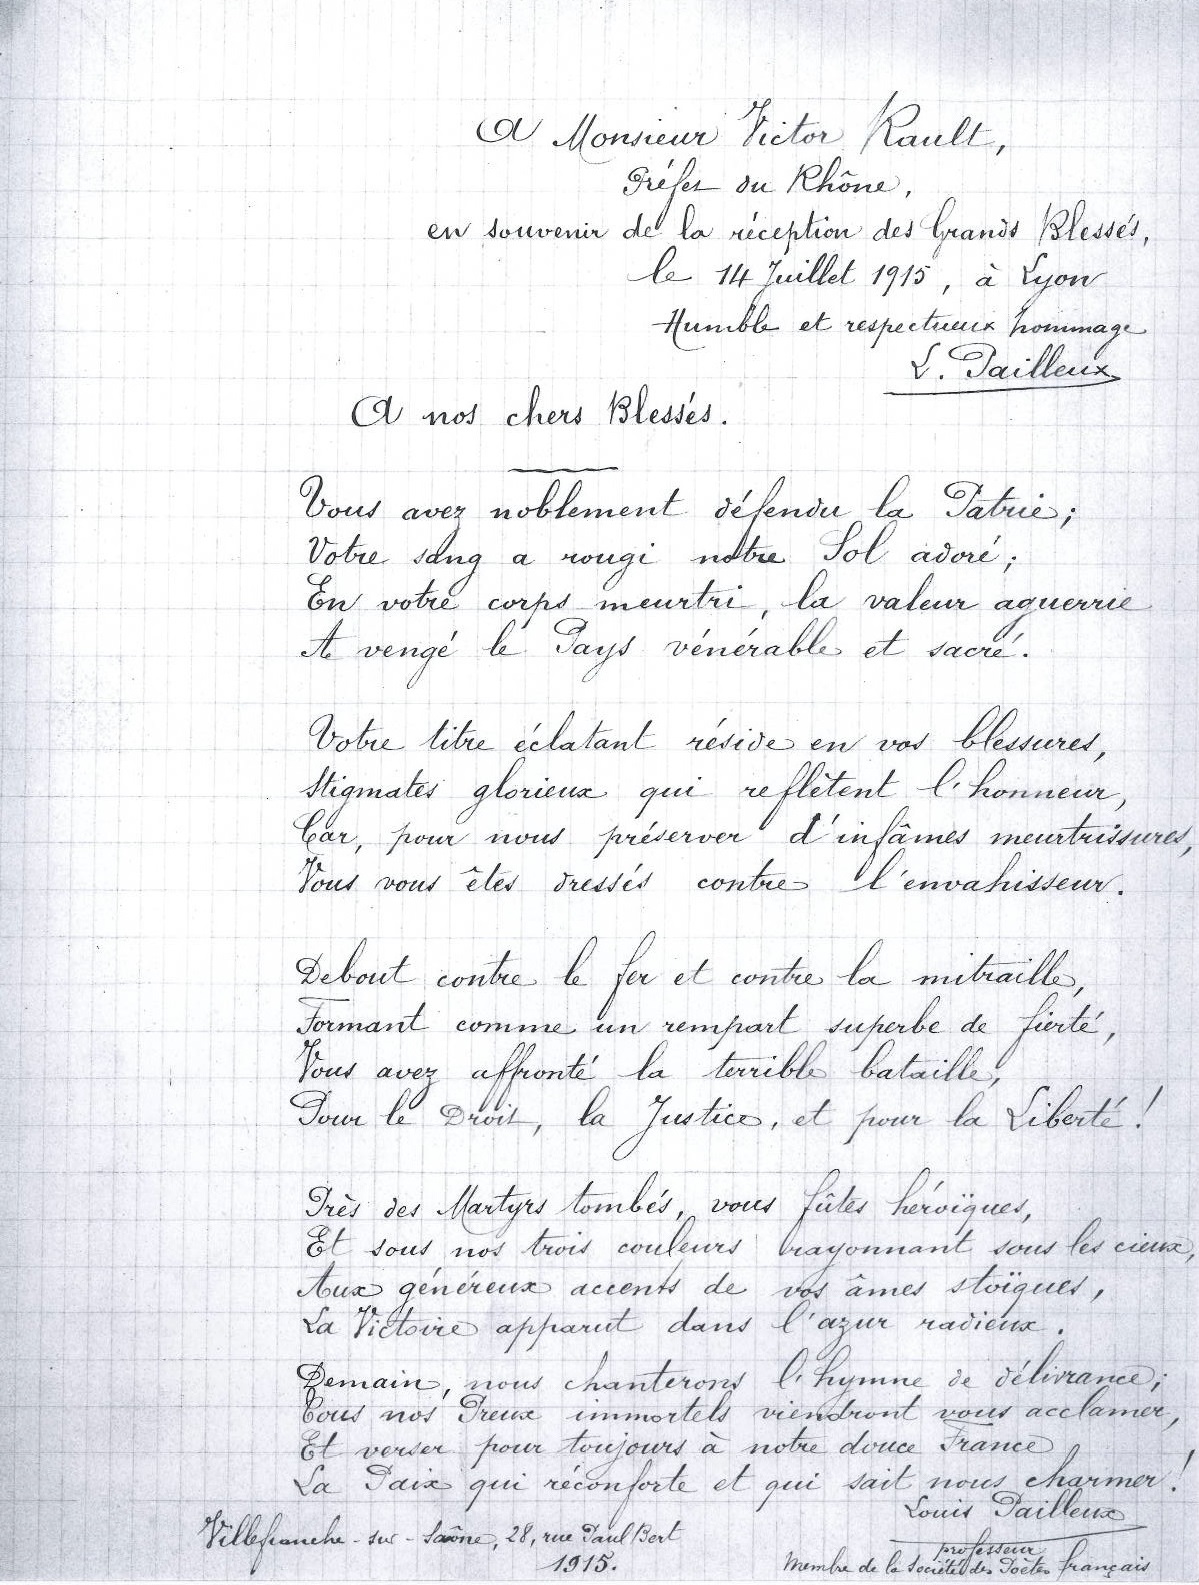 A Monsieur Victor Rault,
Préfet du Rhône,
en souvenir de la réception des Grands Blessés,
le 14 Juillet 1915, à Lyon
Humble et respectueux hommage
L. Pailleux
A nos chers Blessés.
Vous avez noblement défendu la Patrie ;
Votre sang a rougi notre Sol adoré ;
En votre corps meurtri, la valeur aguerrie
A vengé le Pays vénérable et sacré.
Votre titre éclatant réside en vos blessures,
Stigmates glorieux qui reflètent l'honneur,
Car, pour nous préserver d'infâmes meurtrissures,
Vous vous êtes dressés contre l'envahisseur.
Debout contre le fer et contre la mitraille,
Formant comme un rempart superbe de fierté,
Vous avez affronté la terrible bataille,
Pour le Droit, la Justice, et pour la Liberté !
Près des Martyrs tombés, vous fûtes héroïques,
Et sous nos trois couleurs rayonnant sous les cieux,
Aux généreux accents de vos âmes stoïques,
La Victoire apparut dans l'azur radieux.
Demain, nous chanterons l'hymne de délivrance ;
Tous nos Preux immortels viendront vous acclamer,
Et verser pour toujours à notre douce France
La Paix qui réconforte et qui sait nous charmer !
Louis Pailleux
professeur
Membre de la Société des Poètes français
Villefranche-sur-Saône, 28, rue Paul Bert
1915.